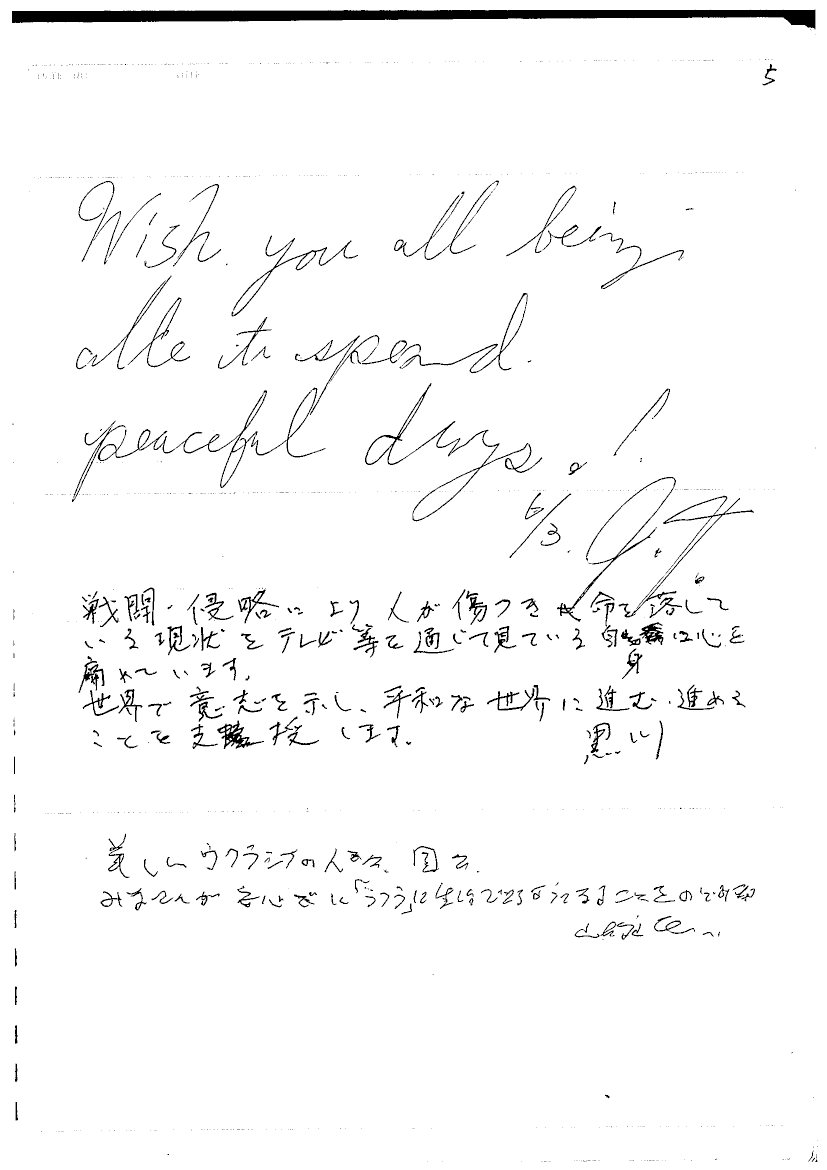 5
Wish you all being
able to spend
peaceful days.!
6/3. J.H
戦闘・侵略により人が傷つき 命を落して
いる現状をテレビ等を通じて見ている自身は心を
痛めています。
世界で意志を示し、平和な世界に進む・進める
ことを支援します。 黒川
美しいウクライナの人々、国土。
みなさんが